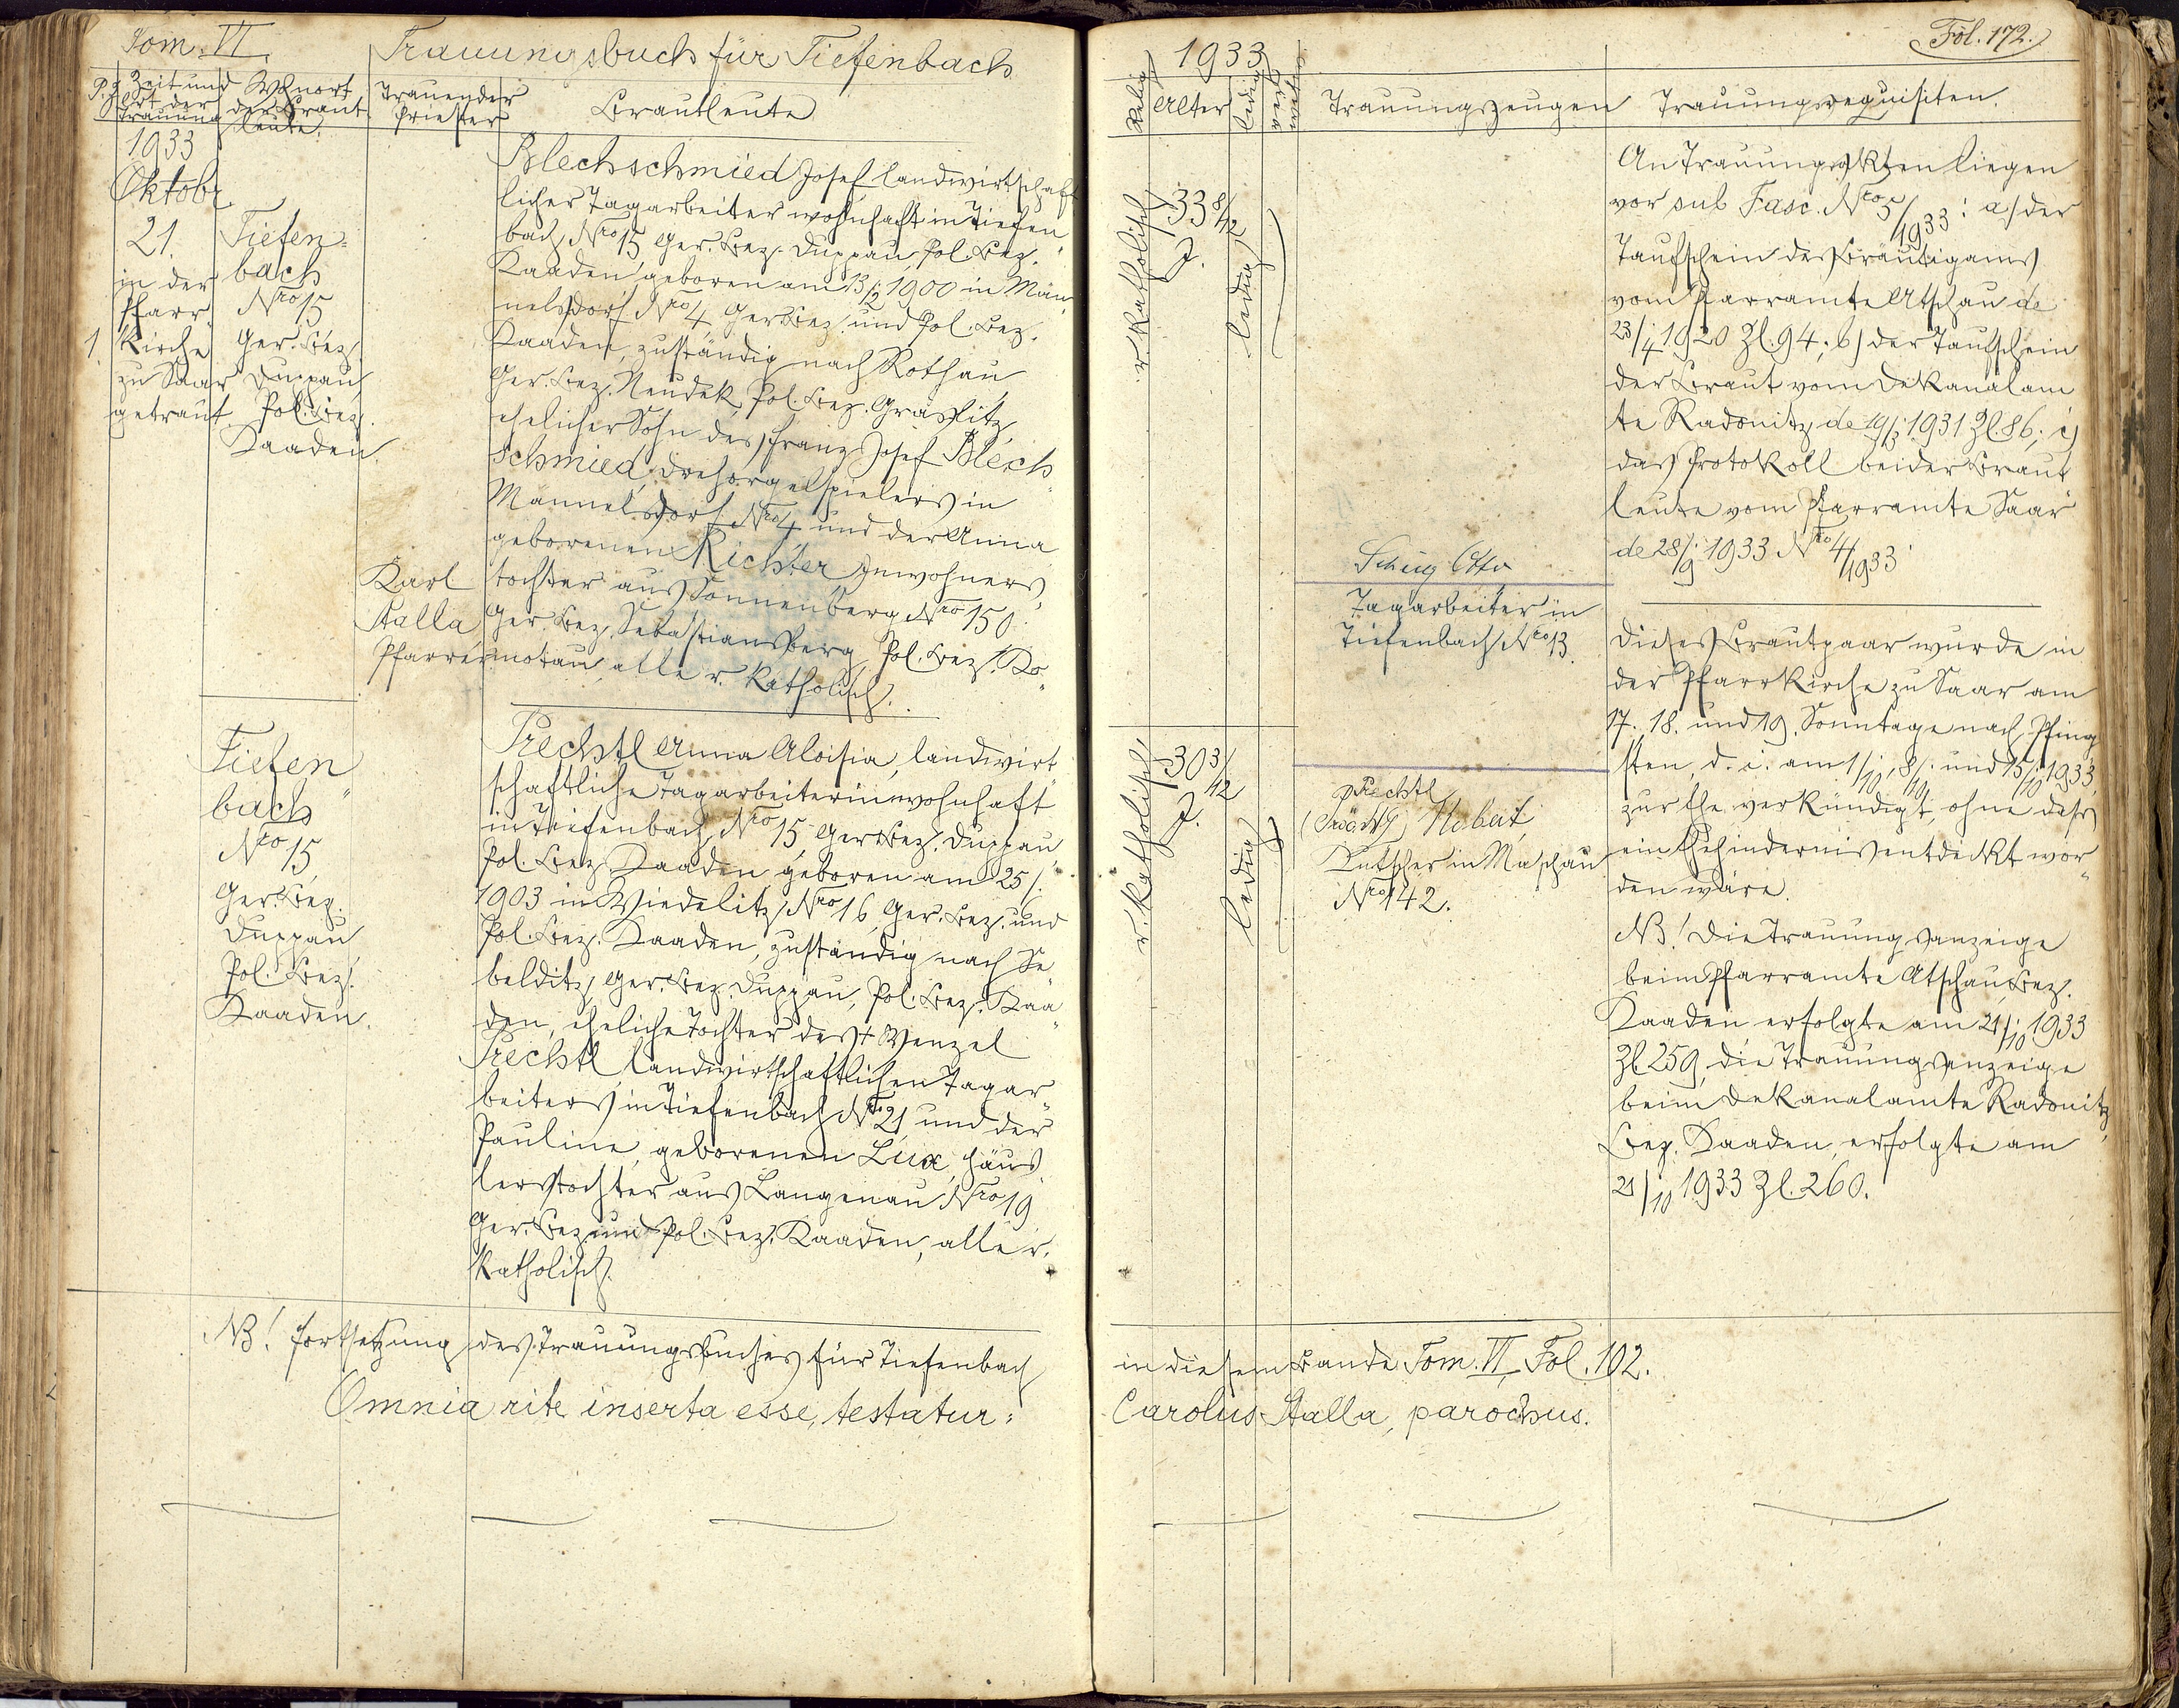 Tom. VI.
Trauungsbuch für Tiefenbach
P.Z.
Zeit und
Ort der
Trauung
Wohnort
der Braut-
leute.
Trauender
Priester
Brautleute
1933
Oktobr.
21.
in der
Pfarr-
Kirche
zu Saar
getraut.
1.
Tiefen-
bach
Nro 15
Ger. Bez.
Duppau,
Pol. Bez.
Kaaden.
Karl
Stalla
Pfarrer
Blechschmied Josef, landwirtschaft
licher Tagarbeiter wohnhaft in Tiefen
bach Nro 15 Ger. Bez. Duppau, Pol. Bez.
Kaaden, geboren am 13/2 1900 in Män
nelsdorf Nro 4, Ger Bez. und Pol. Bez.
Kaaden, zuständig nach Rothau
Ger. Bez. Neudek, Pol. Bez. Graslitz,
ehelicher Sohn des Franz Josef Blech
schmied, Drehorgelspielers in
Männelsdorf Nro 4 und der Anna
geborenen Richter, Inwohners
tochter aus Sonnenberg Nro 150
Ger. Bez. Sebastiansberg, Pol. Bez. Ko
motau, alle r. Katholisch.
Tiefen
bach
Nro 15
Ger. Bez.
Duppau
Pol. Bez.
Kaaden.
Prechtl Anna Aloisia, landwirt
schaftliche Tagarbeiterin wohnhaft
in Tiefenbach, Nro 15, Ger Bez. Duppau,
Pol. Bez. Kaaden, geboren am 25/.
1903 in Wiedelitz, Nro 16, Ger. Bez. und
Pol. Bez. Kaaden, zuständig nach Se
belditz, Ger. Bez. Duppau, Pol. Bez. Kaa
den, eheliche Tochter des + Wenzel
Prechtl, landwirtschaftlichen Tagar
beiters in Tiefenbach Nro 21 und der
Pauline, geborenen Lux, Häus
lerstochter aus Langenau Nro 19
Ger. Bez. und Pol. Bez. Kaaden, alle r.
Katholisch.
NB! Fortsetzung des Trauungsbuches für Tiefenbach
Omnia rite inserta esse, testatur:
1933
Fol. 172.
Relig.
Alter
ledig
Trauungszeugen
Trauungsrequisiten.
r. Katholisch
33 8/12
J.
ledig
Otto
Tagarbeiter in
Tiefenbach Nro 13.
r. Katholisch
30 3/12
J.
ledig
Prechtl
Kutscher in Maschau
Nro 142.
An Trauungsakten liegen
vor sub Fasc. Nro 5/1933: a/ der
Taufschein des Bräutigams
vom Pfarramte Atschau de
23/4 1920 Zl. 94; b) der Taufschein
der Braut vom Dekanalam
te Radonitz de 19/3 1931 Zl 86; c)
das Protokoll beider Braut
leute vom Pfarramte Saar
de 28/9 1933 Nro 4/1933.
Dieses Brautpaar wurde in
der Pfarrkirche zu Saar am
17. 18. und 19. Sonntage nach Pfing
sten, d. i. am 1/10, 8/10 und 15/10 1933,
zur Ehe verkündigt, ohne dass
ein Ehehindernis entdeckt wor
den wäre.
NB! Die Trauungsanzeige
beim Pfarramte Atschau, Bez.
Kaaden erfolgte am 21/10 1933
Zl. 259, die Trauungsanzeige
beim Dekanalamte Radonitz,
Bez. Kaaden, erfolgte am
21/10 1933 Zl. 260.
in diesem Bande Tom. VI, Fol. 102.
Carolus Stalla, parochus.